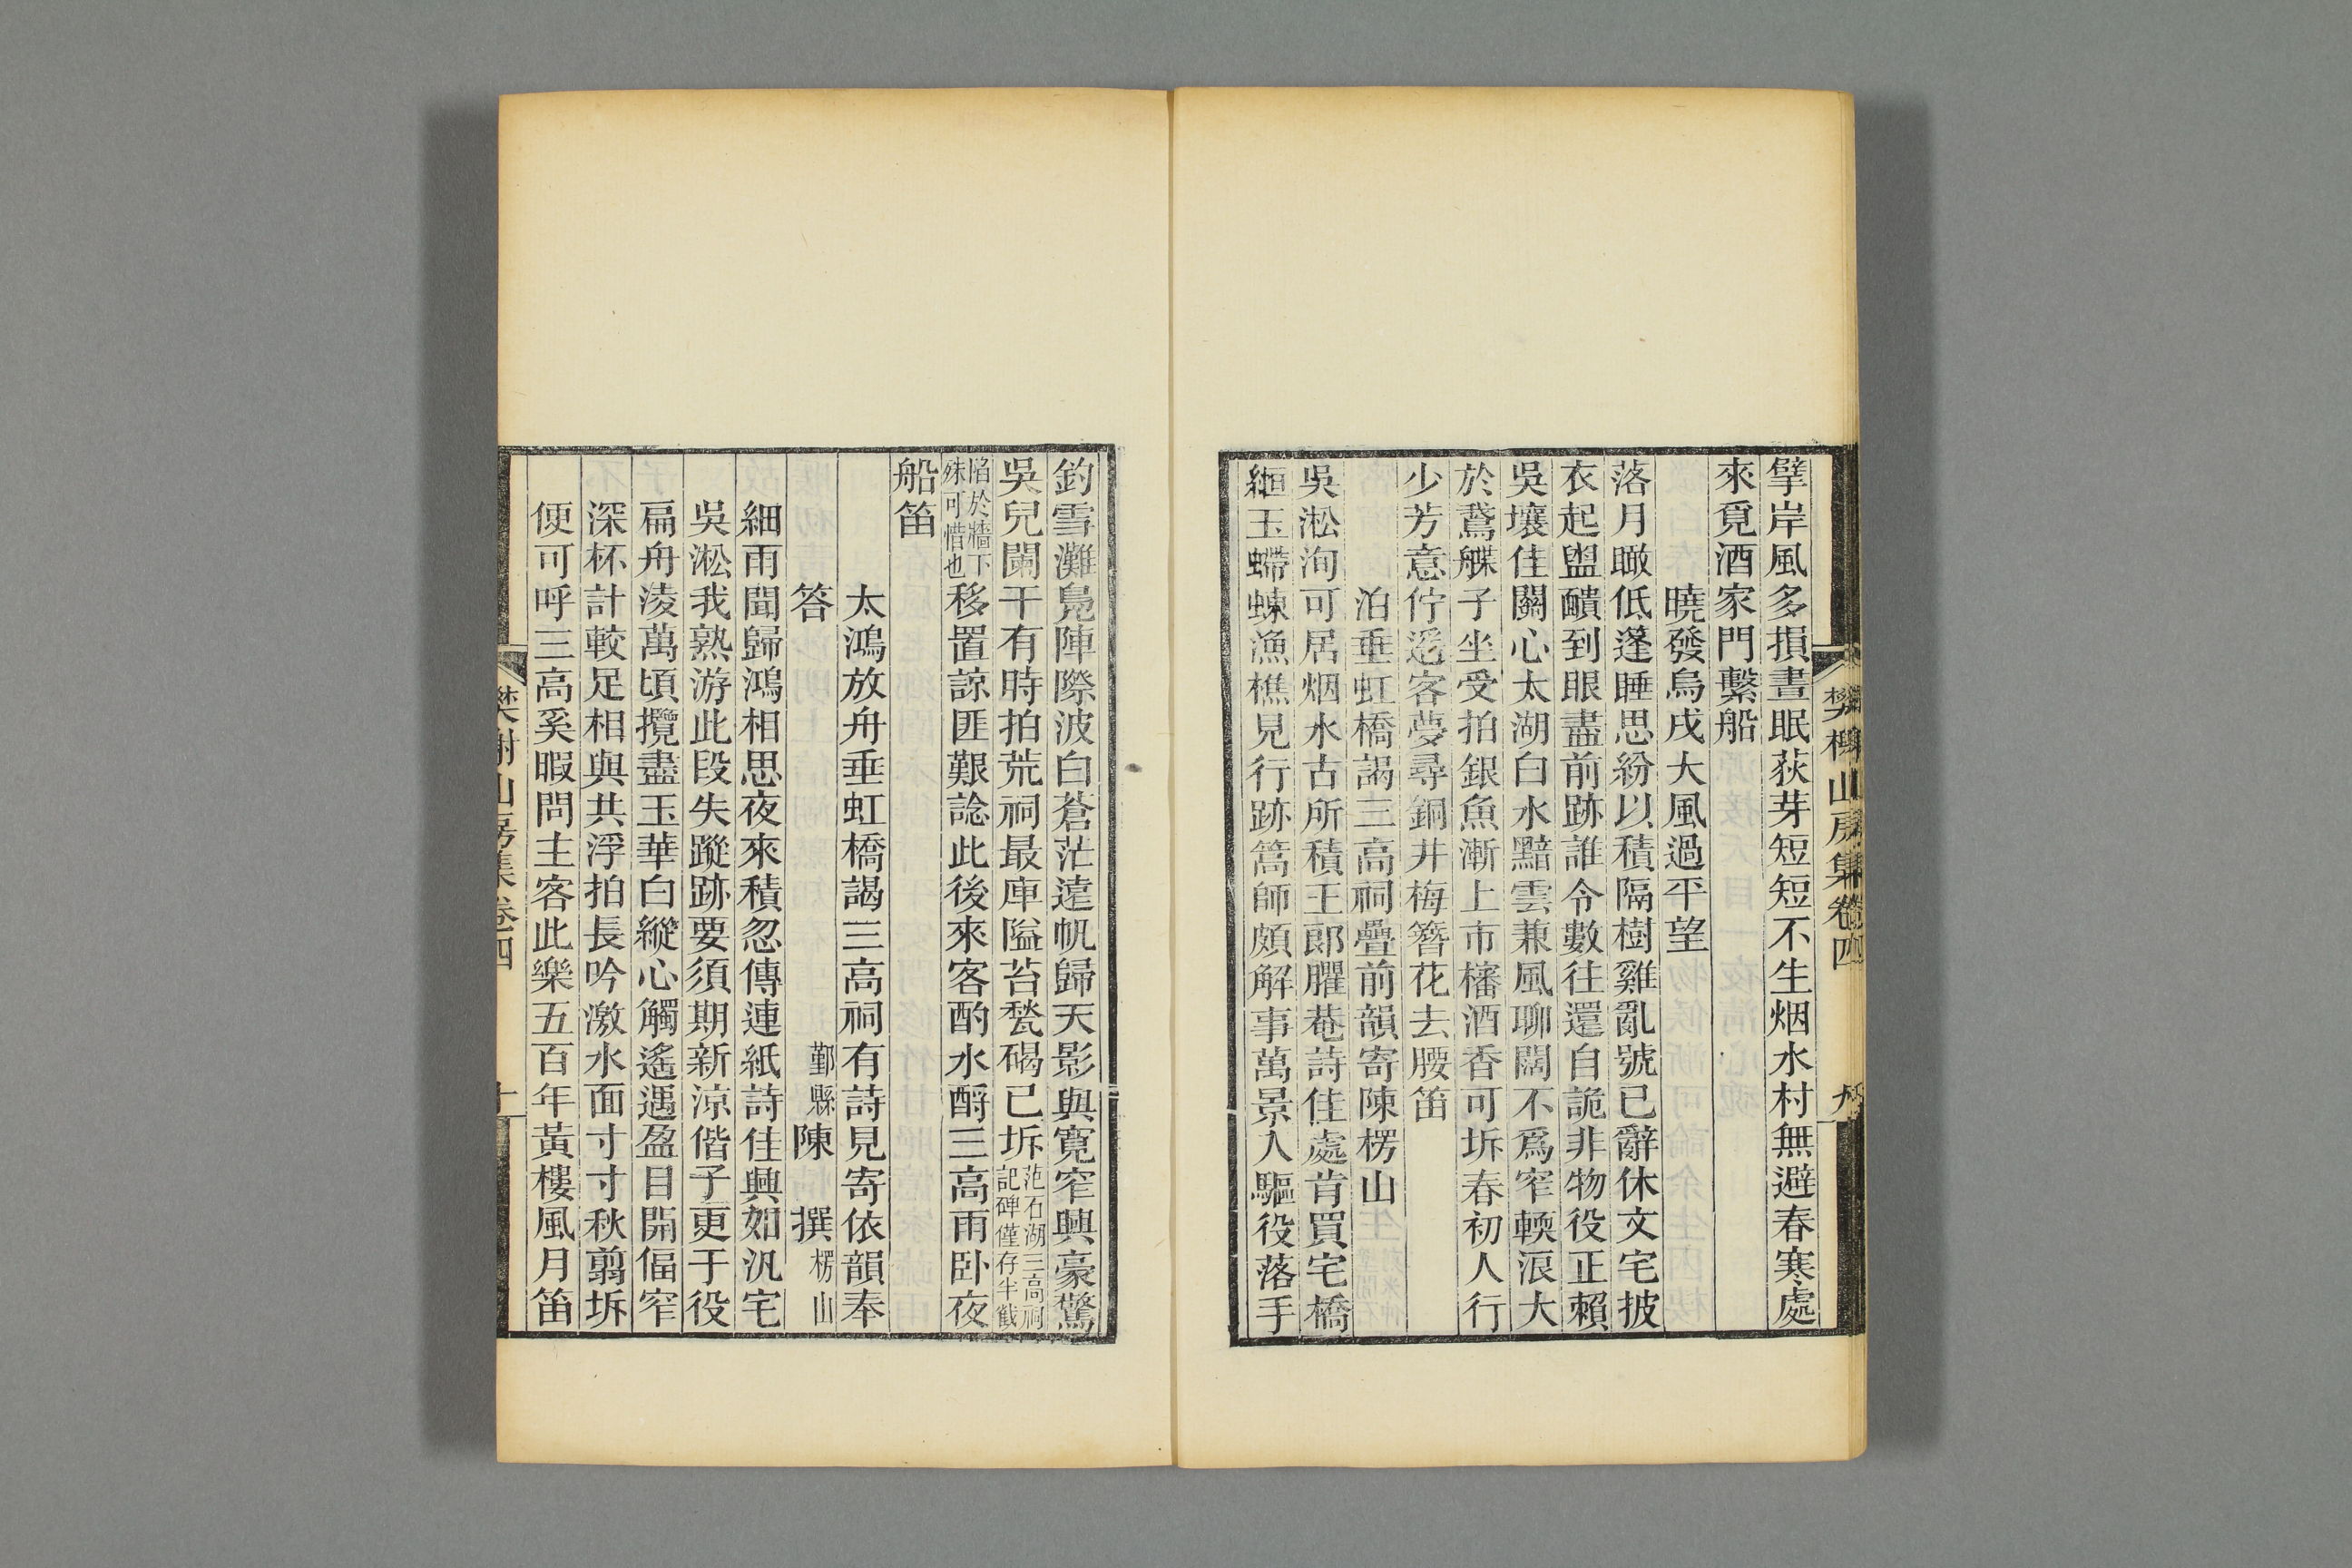 擘岸風多損晝眠荻芽短短不生烟水村無避春寒處
來覓酒家門繫船
曉發烏戍大風過平望
落月瞰低蓬睡思紛以積隔樹雞亂號已辭休文宅披
衣起盥靧到眼盡前跡誰令數往還自詭非物役正賴
吳壤佳關心太湖白水黯雲兼風聊闊不爲窄輭浪大
於鵞艓子坐受拍銀魚漸上市櫧酒香可坼春初人行
少芳意佇遙客夢尋銅井梅簪花去腰笛
泊垂虹橋謁三高祠疊前韻寄陳楞山
吳淞洵可居烟水古所積王郎臞菴詩佳處肯買宅橋
緪玉螮蝀漁樵見行跡篙師頗解事萬景入驅役落手
樊榭山房集卷四
九
釣雪灘鳧陣際波白蒼茫遠帆歸天影與寬窄興豪驚
吳兒闌干有時拍荒祠最庳隘苔甃碣已坼范石湖三高祠記碑僅存半截
陷於牆下殊可惜也移置諒匪艱諗此後來客酌水酹三高雨卧夜
船笛
太鴻放舟垂虹橋謁三高祠有詩見寄依韻奉
答 鄞縣陳 撰楞山
細雨聞歸鴻相思夜來積忽傳連紙詩佳興如汎宅
吳淞我熟游此段失蹤跡要須期新涼偕子更于役
扁舟淩萬頃攬盡玉華白縱心觸遙遇盈目開偪窄
深杯計較足相與共浮拍長吟激水面寸寸秋翦坼
便可呼三高奚暇問主客此樂五百年黃樓風月笛
樊榭山房集卷四
十